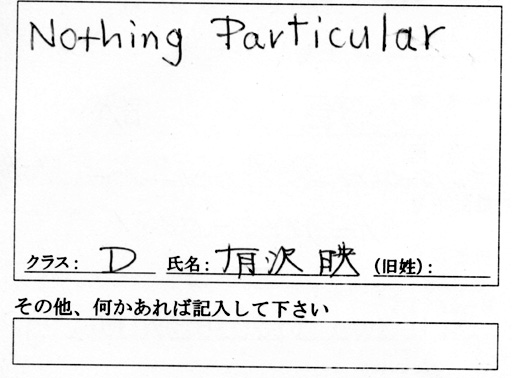 Nothing Particular
クラス: D 氏名: 有沢 映 (旧姓):
その他、何かあれば記入して下さい